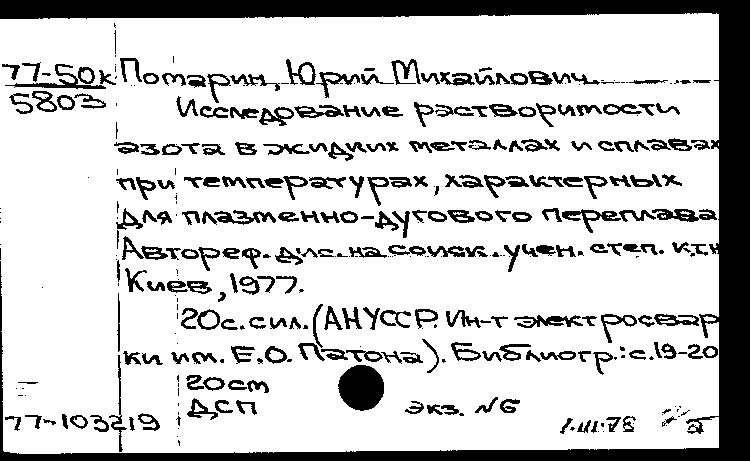 77-50к Помарин, Юрий Михайлович.
5803 Исследование растворимости
азота в жидких металлах и сплавах
при температурах, характерных
для плазменно-дугового переплава
Автореф. дис. на соиск. учен. степ. к.т.н
Киев, 1977.
20с. с ил. (АН УССР. Ин-т электросвар
ки им. Е.О. Патона). Библиогр.: с. 19-20
20 см
ДСП экз. №6
77-103219 1.III.78